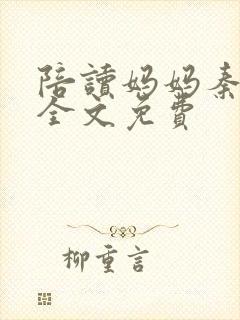 陪讀媽媽秦
全文免費
柳重言